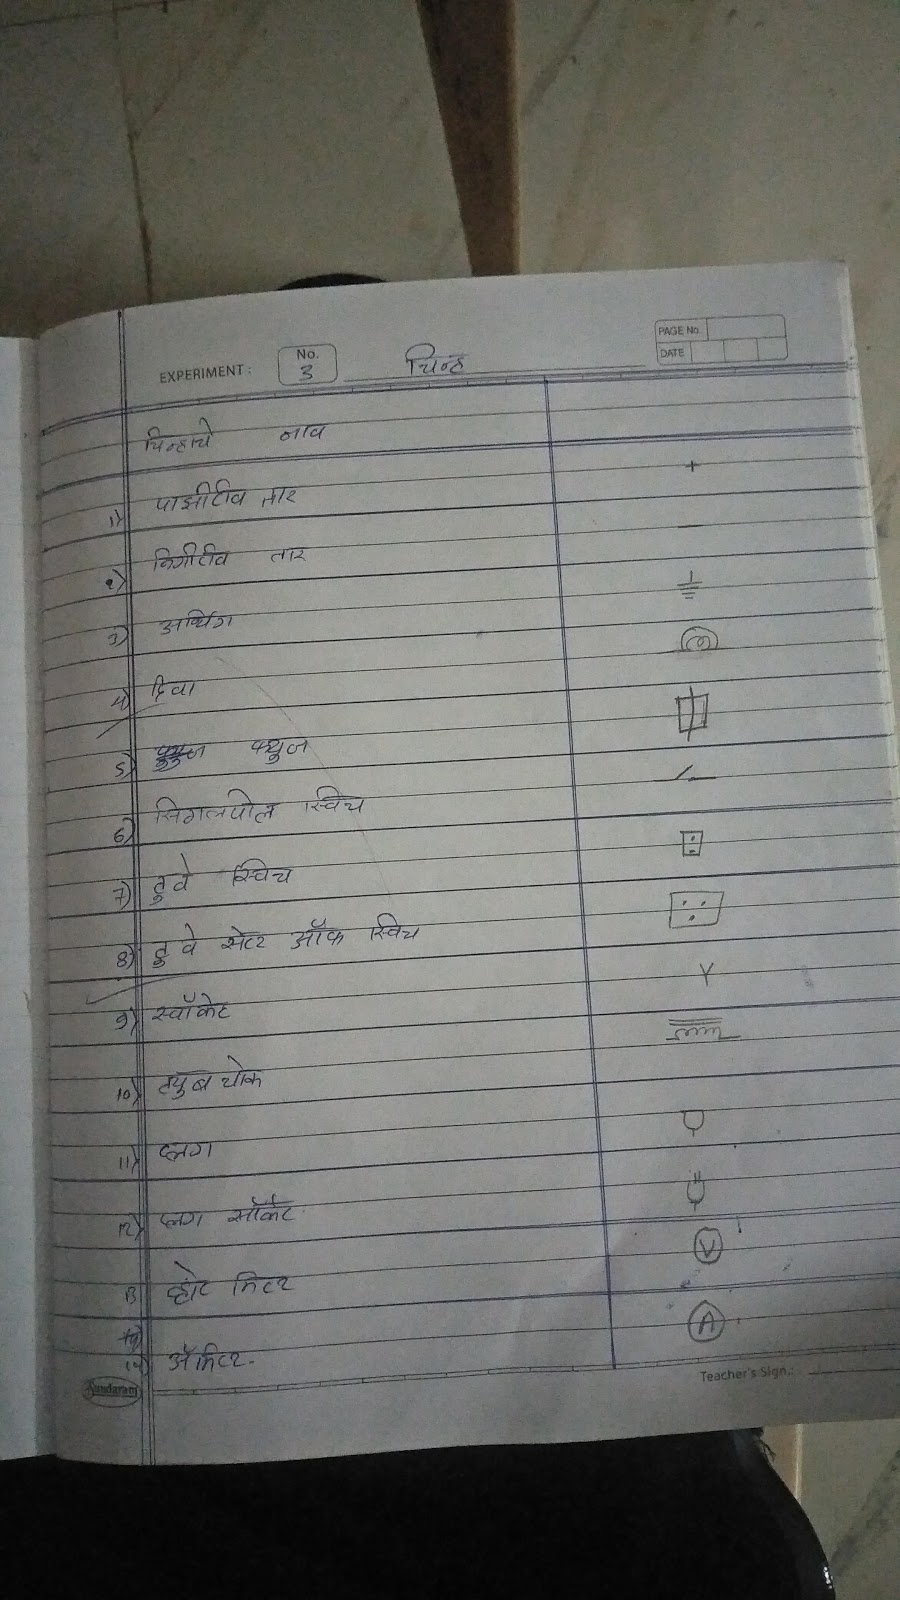 PAGE No.
DATE
EXPERIMENT: No. 3 चिन्ह
चिन्हाचे नाव
1) पाझीटीव तार +
2) निगीटीव तार —
3) अर्थिग
4) दिवा
5) फ्युज
6) सिगलपोल स्विच
7) टु वे स्विच
8) टु वे सेंटर ऑफ स्विच
9) स्वॉकेट Y
10) ट्युब चोक
11) प्लग
12) प्लग सॉकेट
13 व्होट मिटर V
14) अॅमिटर. A
Sundaram
Teacher's Sign.: